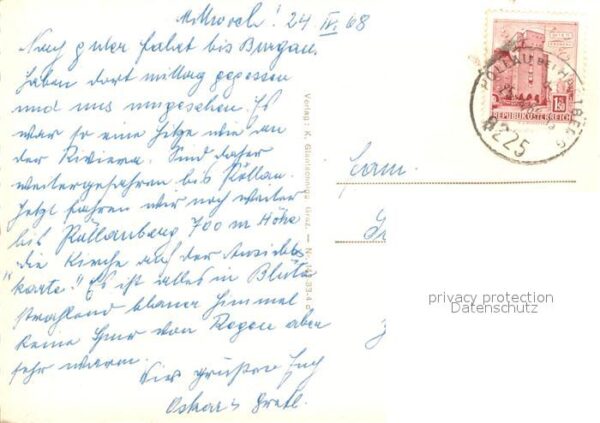 Mittwoch! 24 IV. 68
Nach guter Fahrt bis Burgau.
haben dort mittag gegessen
und uns umgesehen. Es
war so eine Hitze wie an
der Riviera. Sind daher
weitergefahren bis Pöllau.
Jetzt fahren wir noch weiter
bis Pöllauberg 700 m Höhe
"die Kirche auf der Ansichts
karte." Es ist alles in Blüte
strahlend blauer Himmel
keine Spur von Regen aber
sehr warm.
Wir grüßen Euch
Oskar & Gretl.
Verlag: K.
Graz.
Fam.
REPUBLIK ÖSTERREICH
PÖLLAU BEI
8225
privacy protection
Datenschutz